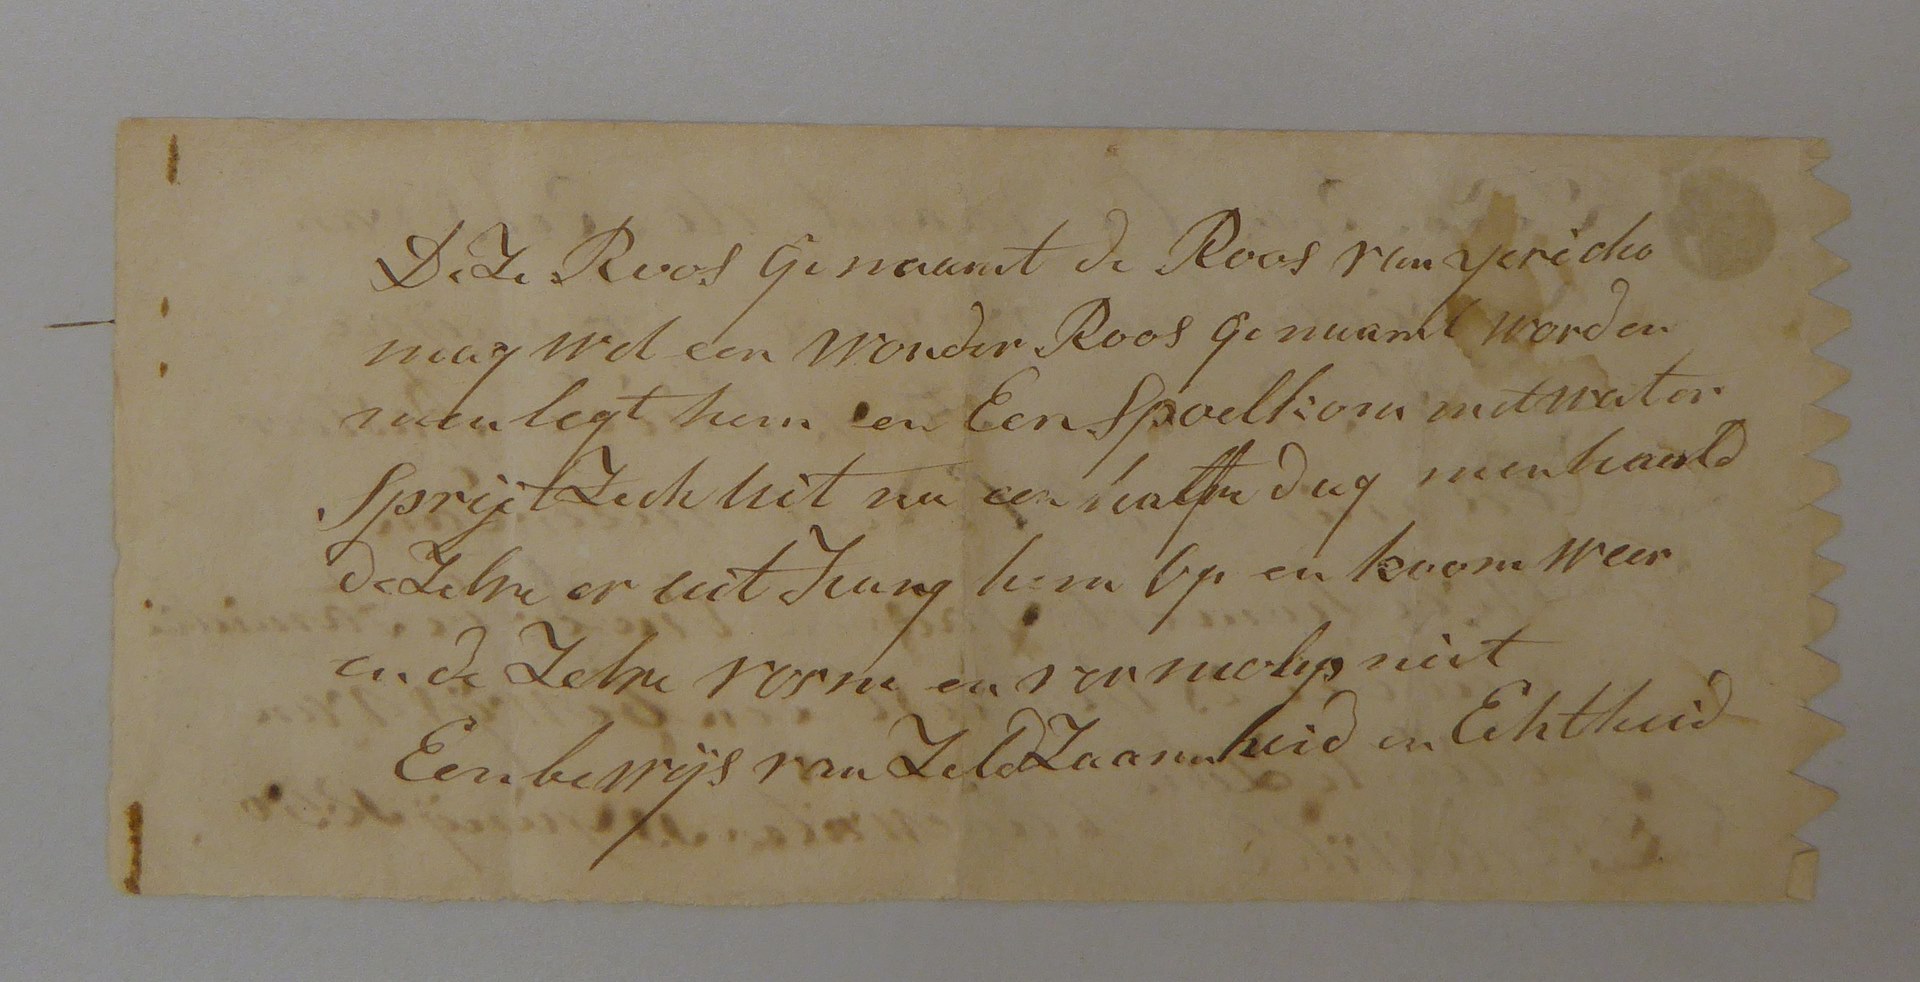 DeZe Roos Genaamt de Roos van yericho
mag wel een Wonder Roos Genaamt worden
men legt hem en Een Spoelkom met water
Sprijt Zich uit na een halfve dag men haald
deZelve er uit hang hem op en koom weer
en de Zelve vorm en vermolyp niet
Een bewijs van ZeldZaamheid en Echtheid